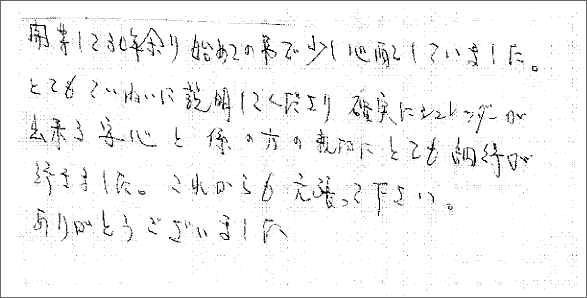 開業して30年余り始めての事で少し心配していました。
とてもていねいに説明してくださり確実にシュレッダーが
出来る安心と係の方の親切にとても納得が
行きました。これからも頑張って下さい。
ありがとうございました